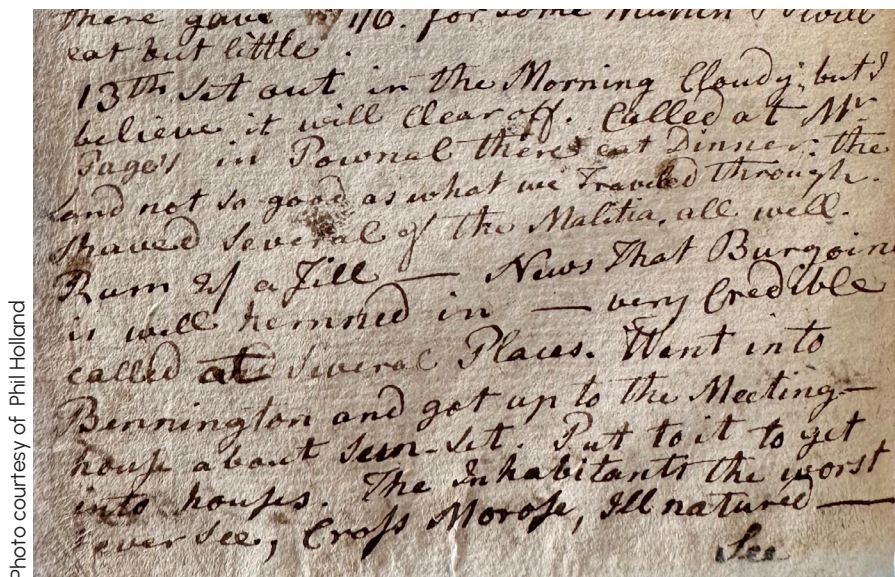 there gave 1/6. for some Mutten I will
eat but little.
13th Set out in the Morning Cloudy; but I
believe it will Clear off. Called at Mr
Page's in Pownal there eat Dinner: the
Land not so good as what we Traveled through.
Shaved Several of the Malitia, all well.
Rum 2/ a Jill — News That Burgoin
is will hemmed in — very Credible
called at Several Places. Went into
Bennington and got up to the Meeting-
house about sun-set. Put to it to get
into houses. The Inhabitants the worst
I ever See, Cross Morose, Ill natured —
See
Photo courtesy of Phil Holland